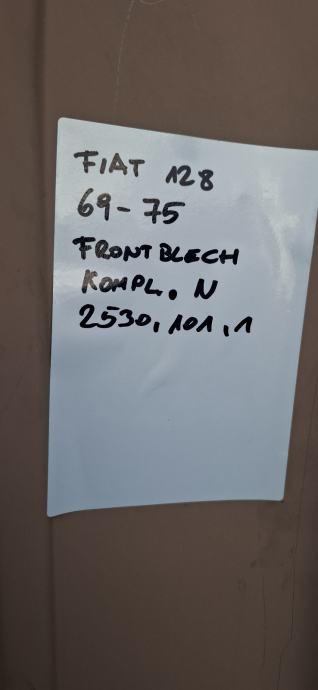 FIAT 128
69-75
FRONTBLECH
KOMPL. N
2530,101,1